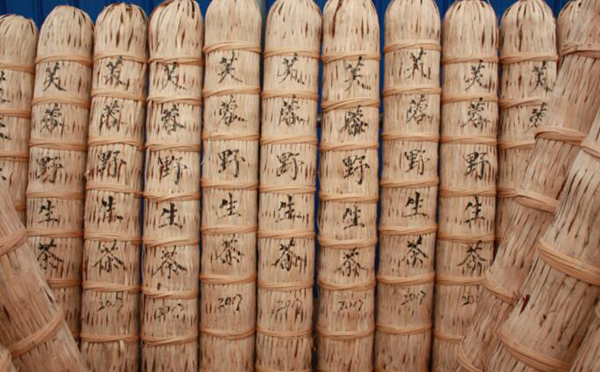 芙蓉野生茶
芙蓉野生茶 2017
芙蓉野生茶 2017
芙蓉野生茶 2017
芙蓉野生茶 2017
芙蓉野生茶 2017
芙蓉野生茶 2017
芙蓉野生茶 2017
芙蓉